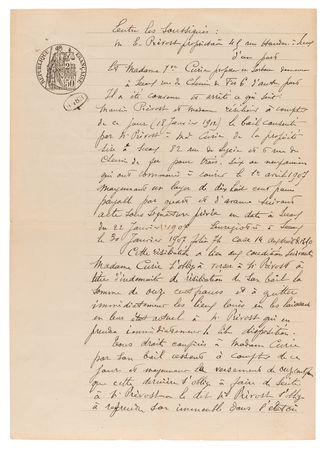 Entre les Soussignés:
M E. Prévost propriétaire 45
d'une part
Et Madame Vve Curie professeur en Sorbonne demeurant
à Sceaux rue du Chemin de Fer 6 d'autre part
Il a été convenu et arrêté ce qui suit
Monsieur Prévost et Madame résilient à compter
de ce jour (18 Janvier 1912) le bail consenti
par Mr Prévost à Mme Curie de la propriété
sise à Sceaux 82 rue de et 6 rue du
Chemin de fer pour trois, six ou neuf années
qui ont commencé à courir le 1er avril 1907
moyennant un loyer de dix huit cent francs
payable par quarts et d'avance suivant
acte sous signature privée en date à Sceaux
du 22 Janvier 1907 Enregistré à Sceaux
le 30 Janvier 1907 folio 76 case 14
Cette résiliation a lieu aux conditions suivantes
Madame Curie s'oblige à verser à Mr Prévost à
titre d'indemnité de résiliation de son bail la
somme de onze cent francs et à quitter
immédiatement les lieux loués en les laissant
en leur état actuel à Mr Prévost qui en
prendra immédiatement la libre disposition.
Tous droits conférés à Madame Curie
par son bail cessent à compter de ce
jour et moyennant le versement de onze cent francs
que cette dernière s'oblige à faire de suite
à Mr Prévost le dit Mr Prévost s'oblige
à reprendre son immeuble dans l'état où
RÉPUBLIQUE FRANÇAISE